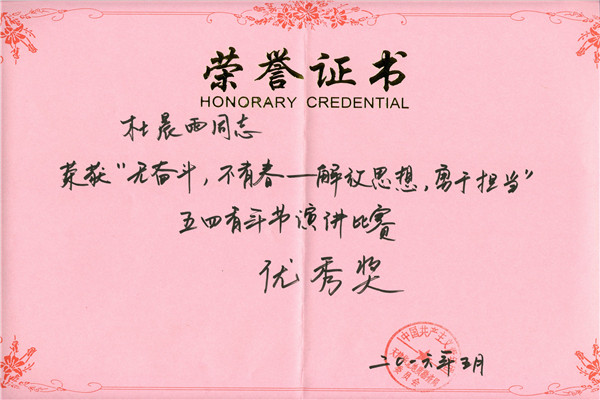 荣誉证书
HONORARY CREDENTIAL
杜晨西同志
荣获“无奋斗,不青春—解放思想,勇于担当”
五四青年节演讲比赛
优秀奖
中国共产主义
委员会
二〇一六年五月